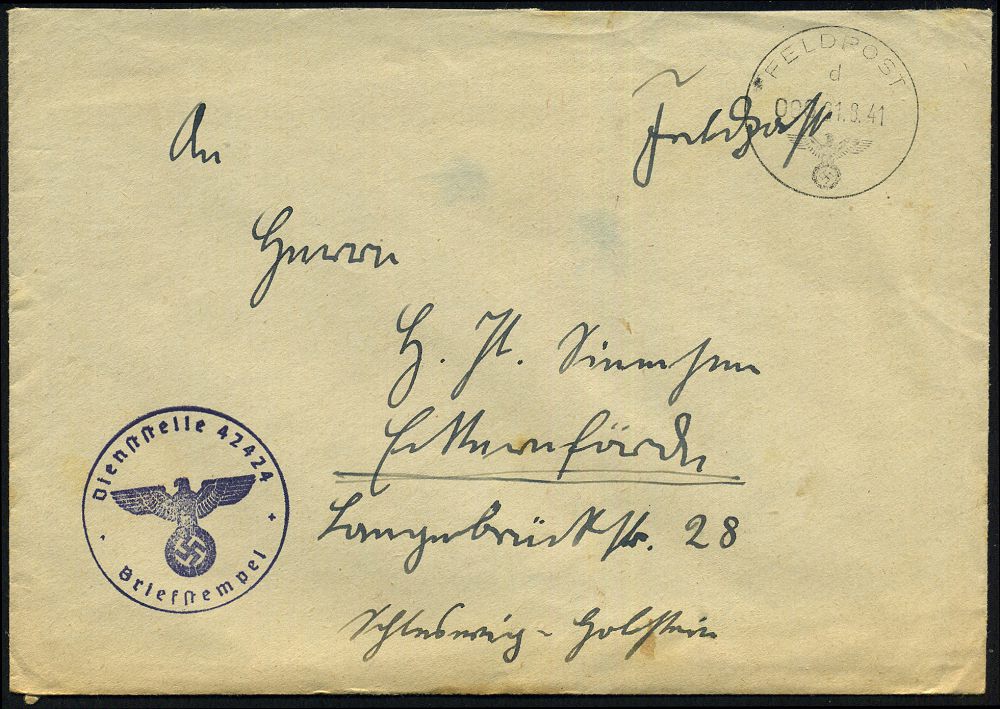 FELDPOST
d
1.8.41
Feldpost
An
Herrn
H. H.
Eckernförde
Langebrückstr. 28
Schleswig-Holstein
Dienststelle 42424
Briefstempel